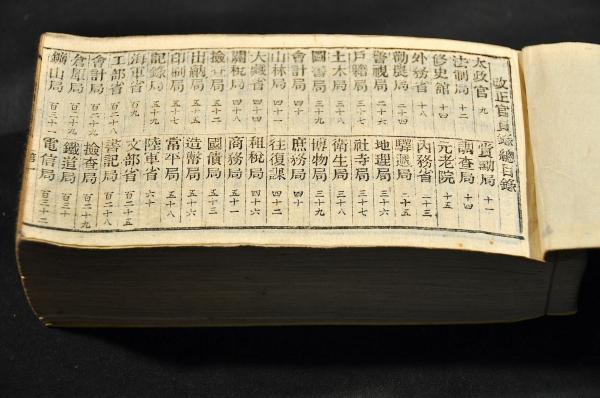 改正官員録總目録
太政官 九
賞勲局 十一
法制局 十二
調査局 十四
修史館 十四
元老院 十五
外務省 十八
内務省 二十三
勧農局 二十四
驛逓局 二十五
警視局 二十六
地理局 三十七
戸籍局 三十七
社寺局 三十七
土木局 三十八
衛生局 三十八
圖書局 三十九
博物局 三十九
會計局 四十
庶務局 四十
山林局 四十一
往復課 四十二
大蔵省 四十四
租税局 四十六
關税局 四十八
商務局 五十一
檢査局 五十二
國債局 五十三
出納局 五十四
造幣局 五十五
印刷局 五十七
常平局 五十八
記録局 五十九
陸軍省 六十
海軍省 百九
文部省 百二十五
工部省 百二十八
書記局 百二十八
會計局 百二十九
檢査局 百二十九
倉庫局 百二十九
鐵道局 百三十
鑛山局 百三十一
電信局 百三十二
第一